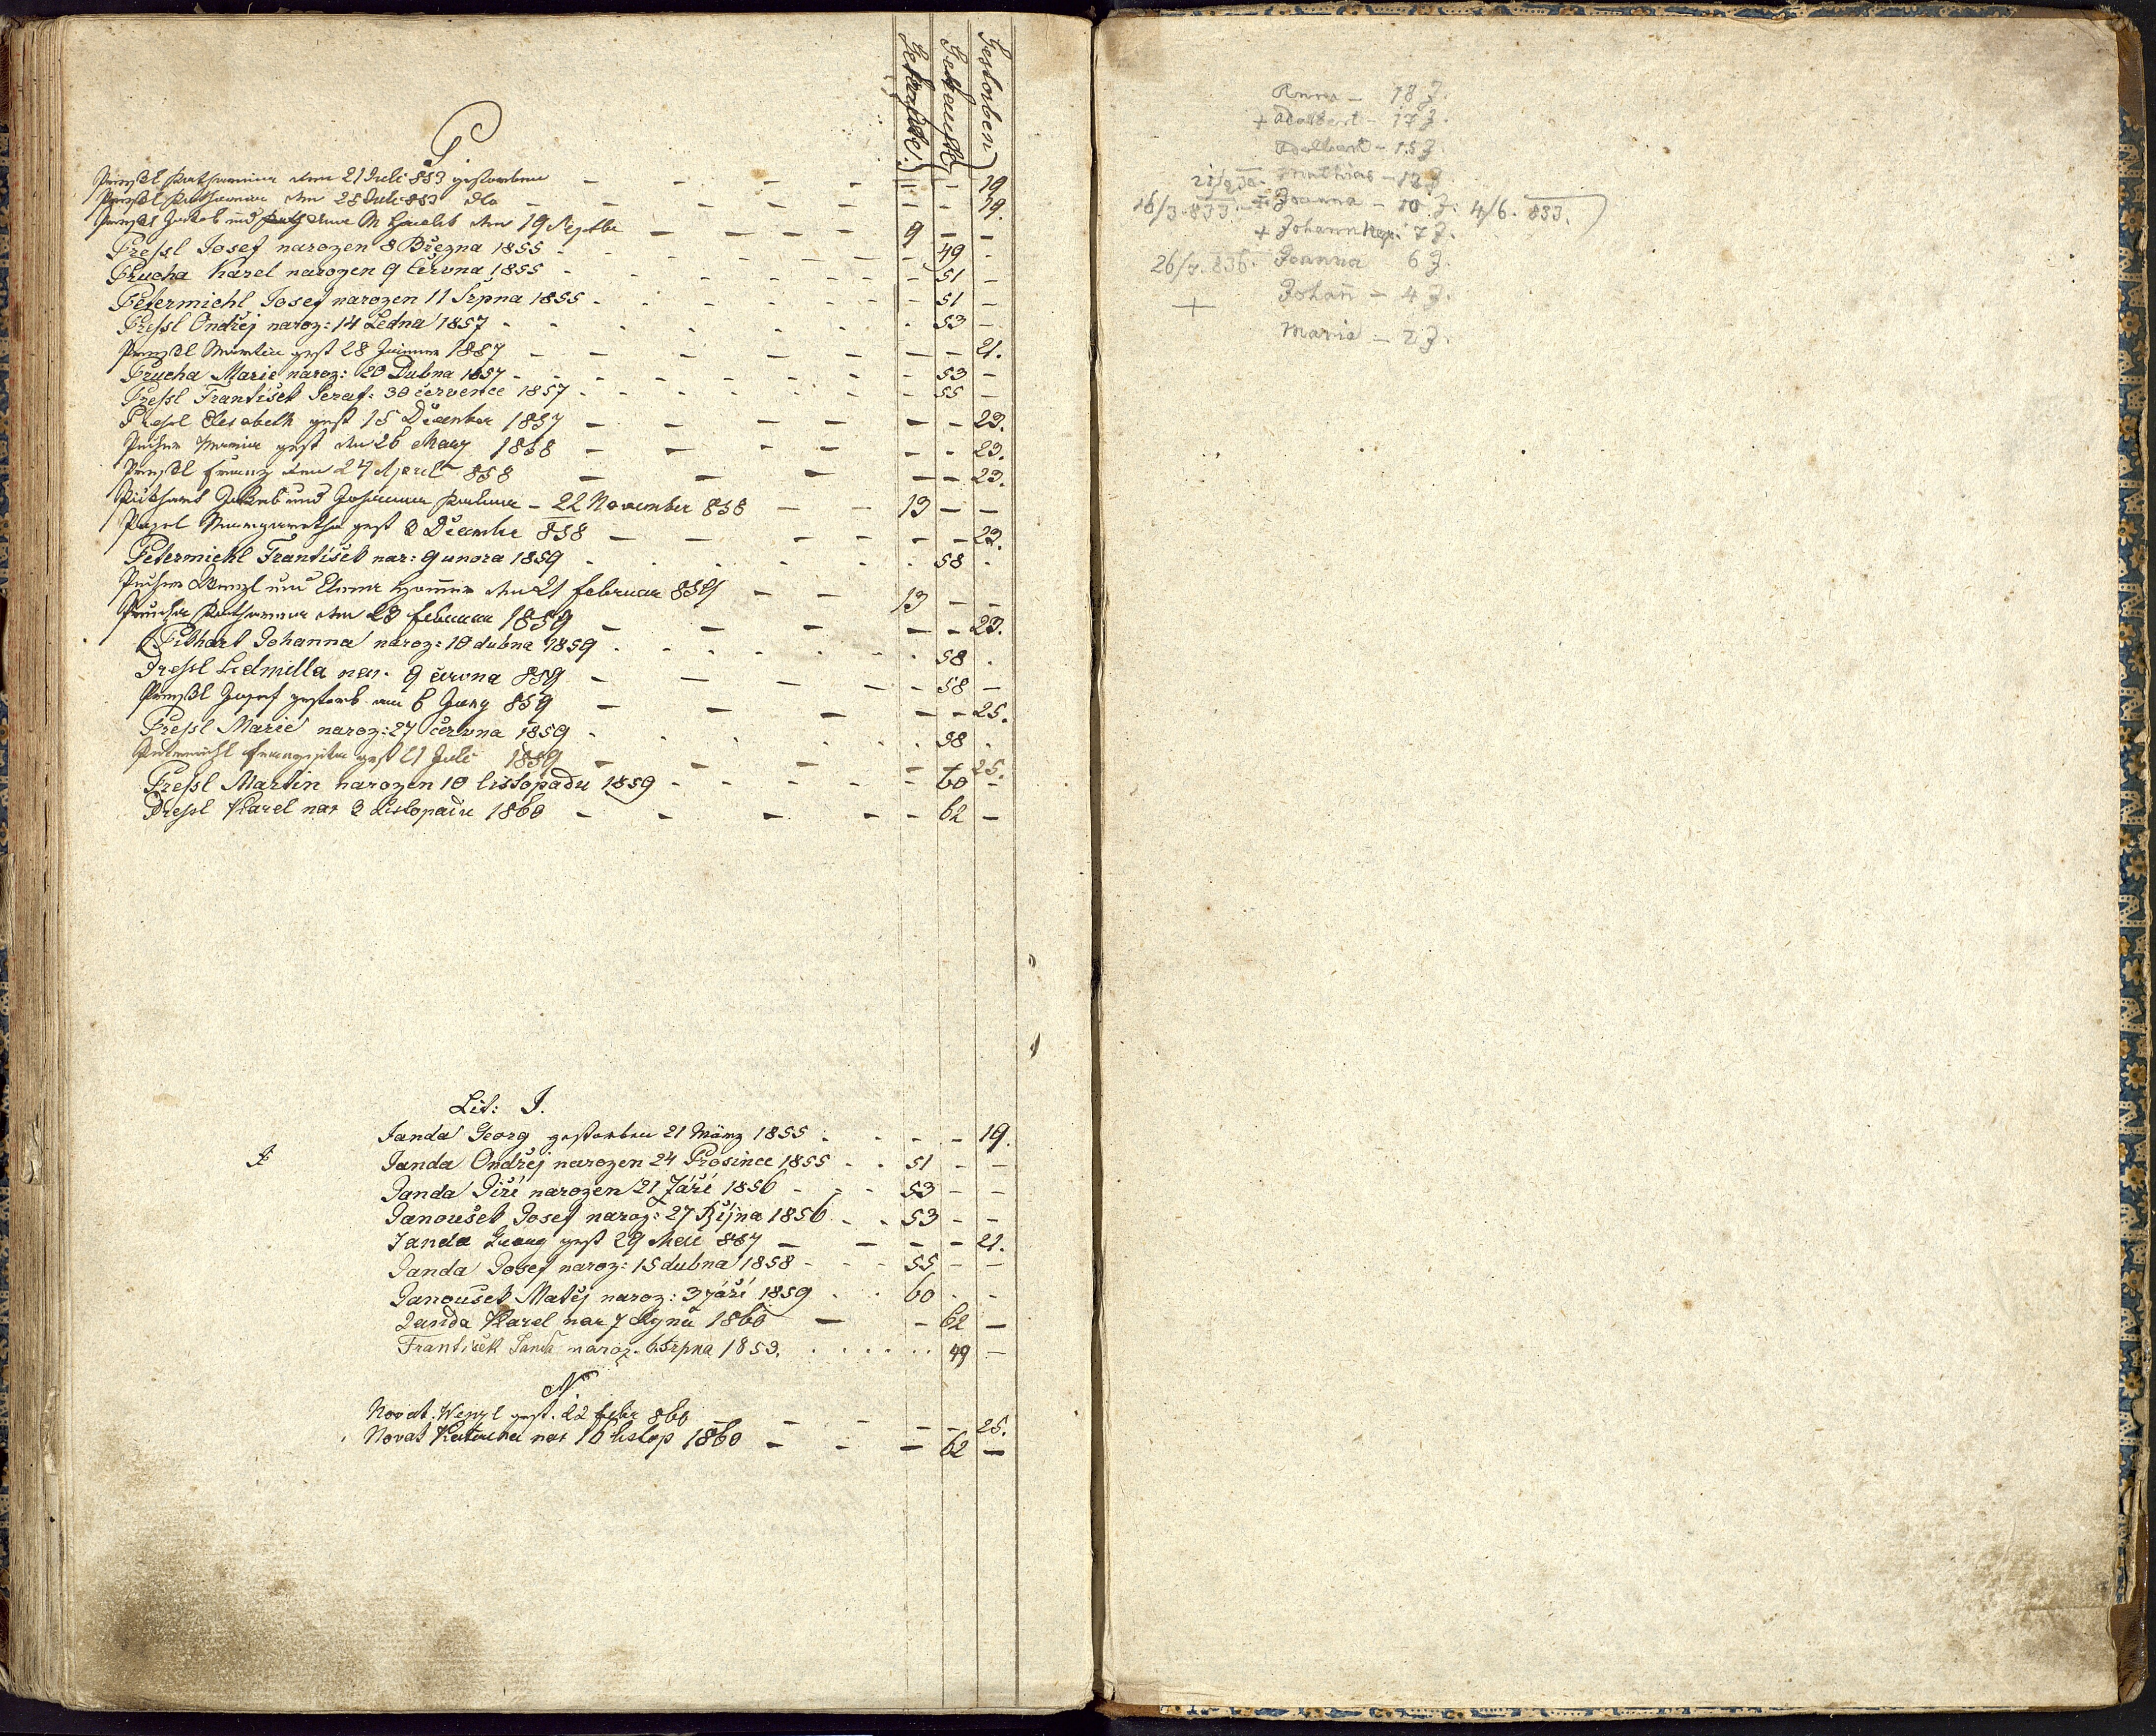 Getraute. Getaufte Gestorben
P
Preßl Katharina den 21 Juli 853 gestorben — — — — — — 19
Preßl Katharina den 25 Juli 853 dto — — — — — — 19.
Preßl Jakob und Anna den 19 Septbr — — — — 9 — —
Preßl Josef narozen 8 Března 1855 - - - - - - 49 -
Prucha Karel narozen 9 Června 1855 - - - - - - 51 —
Petermichl Josef narozen 11 Srpna 1855 - - - - - - 51 —
Preßl Ondřej naroz: 14 Ledna 1857 - - - - - - 53 —
Preßl Martin gest 28 Jänner 1857 — — — — — — 21.
Prucha Marie naroz: 20 Dubna 1857 - - - - - - 53 —
Preßl František Seraf: 30 července 1857 - - - - - 55 —
Preßl Elisabeth gest 15 December 1857 — — — — — — 23.
Maria gest den 26 März 1858 — — — — — 23.
Preßl Franz den 24 April 858 — — — — — 23.
Pithart Jakob und Johanna — 22 November 858 — — 13 — —
Margaretha gest 3 December 858 — — — — — — 23.
Petermichl František nar: 9 unora 1859 - - - - - 58 -
Wenzl und den 21 Februar 859 — — 13 — —
Prucha Katharina den 23 Februar 1859 — — — — — 23.
Pithart Johanna naroz: 10 dubna 1859 - - - - - 58 -
Preßl Ludmilla nar. 9 června 859 — — — — — 58 —
Preßl Josef gestorb am 6 Juny 859 — — — — — 25.
Preßl Marie naroz: 27 června 1859 - - - - - 58 -
Petermichl gest 21 Juli 1859 — — — — — 25.
Preßl Martin narozen 10 listopadu 1859 - - - - - 60 -
Preßl Karel nar 3 Listopadu 1860 — — — — — 62 —
Lit: J.
Janda Georg gestorben 21 März 1855 - - - - 19.
J Janda Ondřej narozen 24 Prosince 1855 - - 51 - -
Janda Jiří narozen 21 Září 1856 - - - 53 - -
Janoušek Josef naroz: 27 Října 1856 - - 53 - -
Janda gest 29 Mai 857 — — — — 21.
Janda Josef naroz: 15 dubna 1858 - - - 55 - -
Janoušek Matěj naroz: 3 září 1859 - - 60 - -
Janda Karel nar 7 Ryna 1860 — — 62 —
František Janda naroz. 6 Srpna 1853. . . . . . . 49 —
N.
Novak Wenzl gest. 22 Febr 860 — — — — — 25.
Novak Katerina nar 16 listop 1860 — — — 62 —
Anna — 18 J.
+ Adalbert — 17 J.
Adalbert — 15 J.
Mathias — 12 J.
16/3. 833. + Joanna — 10 J. 4/6. 833.
+ Johann Nep. 7 J.
26/7. 836. Joanna 6 J.
+ Johann — 4 J.
Maria — 2 J.